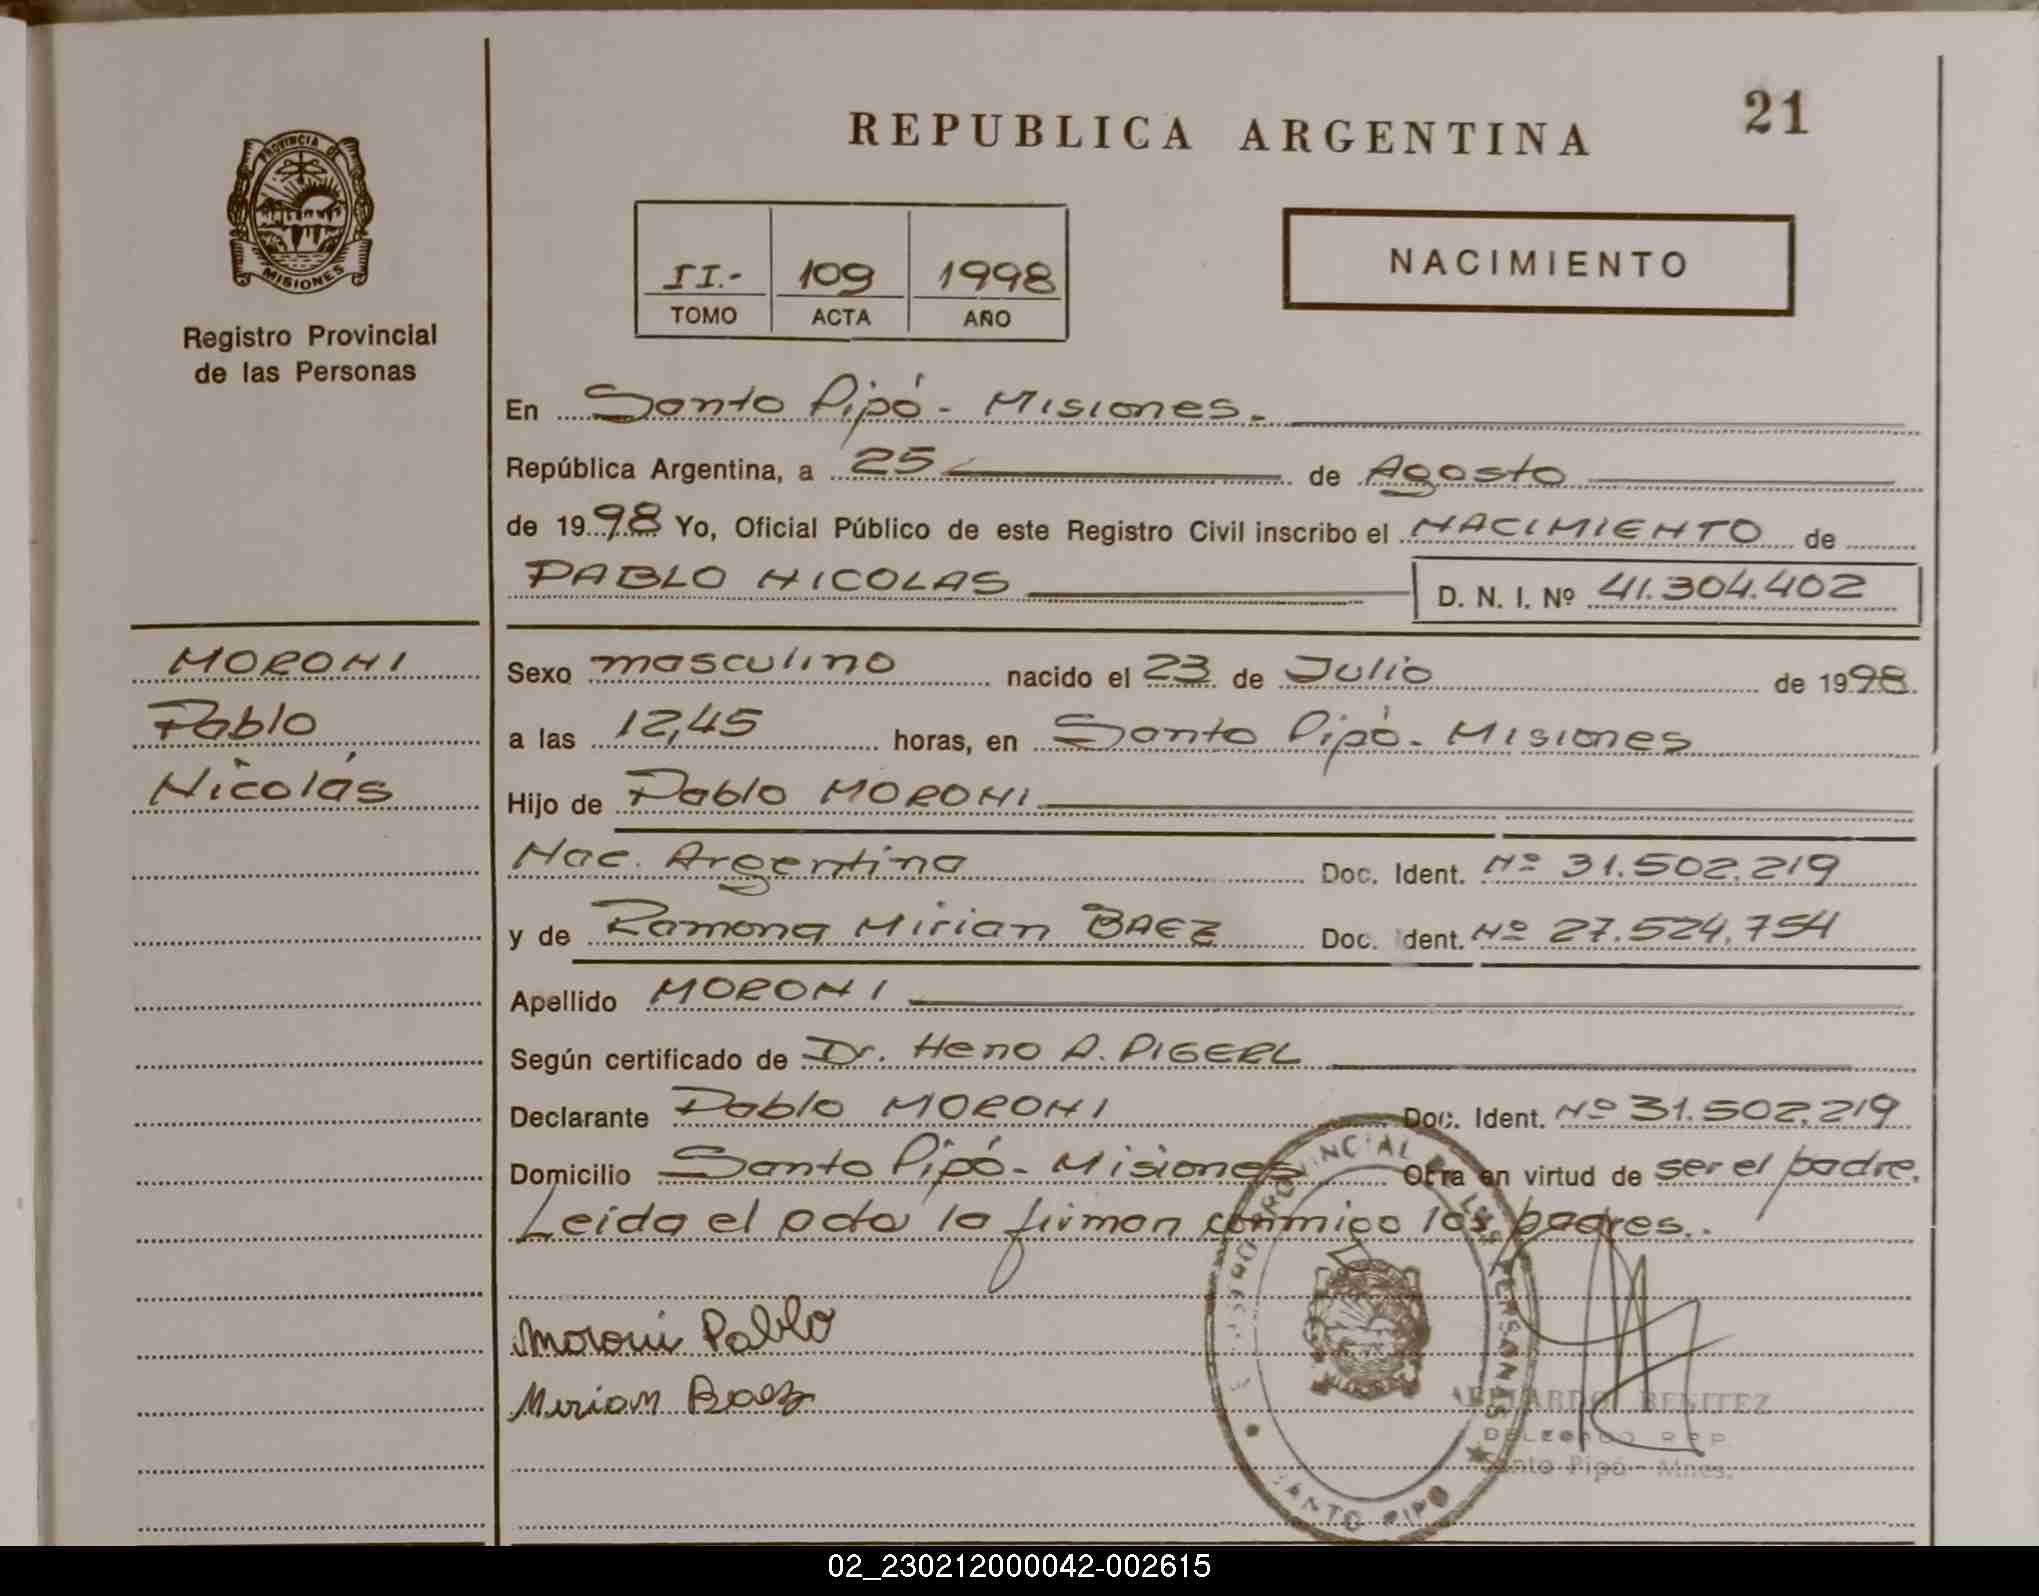 REPUBLICA ARGENTINA
21
PROVINCIA DE
MISIONES
Registro Provincial
de las Personas
II.- 109 1998
TOMO ACTA AÑO
NACIMIENTO
En Santo Pipó - Misiones.-
República Argentina, a 25 de Agosto
de 1998 Yo, Oficial Público de este Registro Civil inscribo el NACIMIENTO de
PABLO NICOLAS D. N. I. Nº 41.304.402
MORONI
Pablo
Nicolás
Sexo masculino nacido el 23 de Julio de 1998.
a las 12,45 horas, en Santo Pipó - Misiones
Hijo de Pablo MORONI
Nac. Argentina Doc. Ident. Nº 31.502.219
y de Ramona Mirian BAEZ Doc. dent. Nº 27.524.754
Apellido MORONI
Según certificado de Dr. Heno A. PIGERL
Declarante Pablo MORONI Doc. Ident. Nº 31.502.219
Domicilio Santo Pipó - Misiones Otra en virtud de ser el padre.
Leida el acta la firman conmigo los padres.
Moroni Pablo
Mirian Baez
PROVINCIAL DE LAS PERSONAS
SANTO PIPO
BENITEZ
DELEGADO R.P.P.
Santo Pipó - Mnes.
02_230212000042-002615